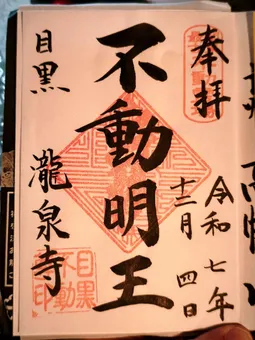 奉拝
令和七年
十二月四日
不動明王
目黒
瀧泉寺
目黒
不動
印